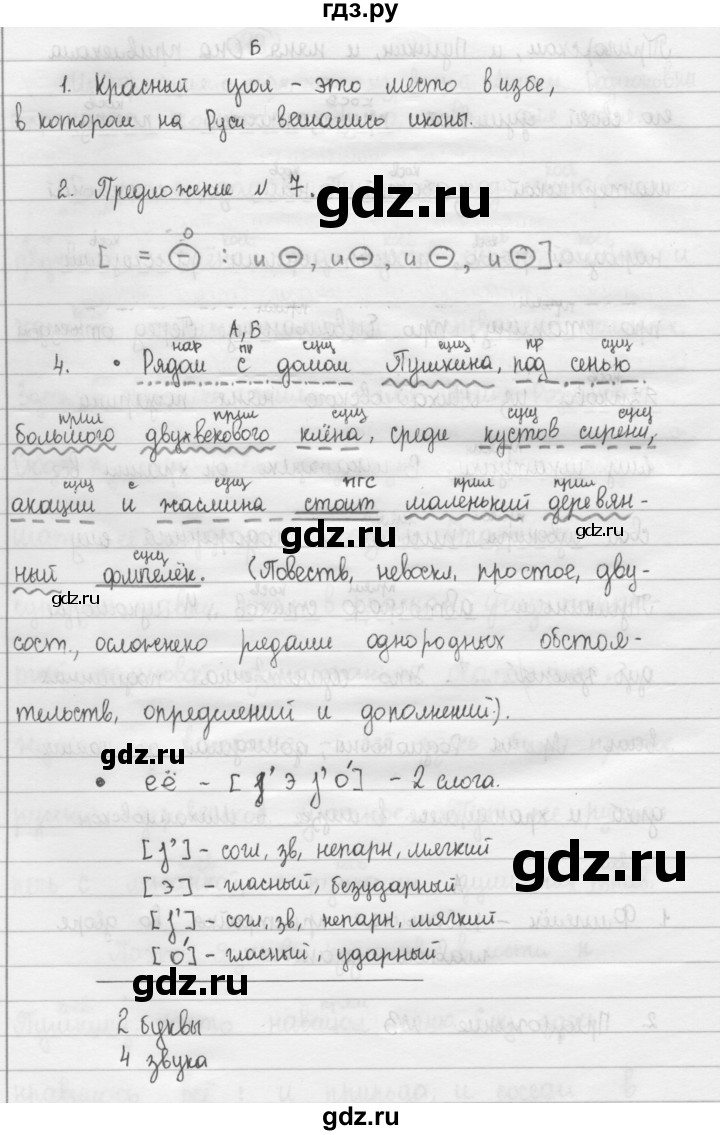 гдз.ру
Б
1. Красный угол – это место в избе,
в котором на Руси вешались иконы.
gdz.ru
2. Предложение № 7.
gdz.ru
О
[ = ⊖ : и ⊖, и ⊖, и ⊖, и ⊖ ].
А, В
нар пр сущ сущ пр сущ
4. • Рядом с домом Пушкина, под сенью
прил прил сущ сущ сущ
большого двухвекового клёна, среди кустов сирени,
сущ с сущ гл прил прил
акации и жасмина стоит маленький деревян-
gdz.ru
сущ
ный флигелёк. (Повеств, невоскл, простое, дву-
gdz.ru
gdz.ru
сост., осложнено рядами однородных обстоя-
тельств, определений и дополнений).
gdz.ru
• её – [j’ э j’ о́] – 2 слога.
[j’] – согл, зв, непарн, мягкий
gdz.ru
[э] – гласный, безударный
[j’] – согл, зв, непарн, мягкий
[о́] – гласный, ударный
gdz.ru
2 буквы
4 звука
gdz.ru